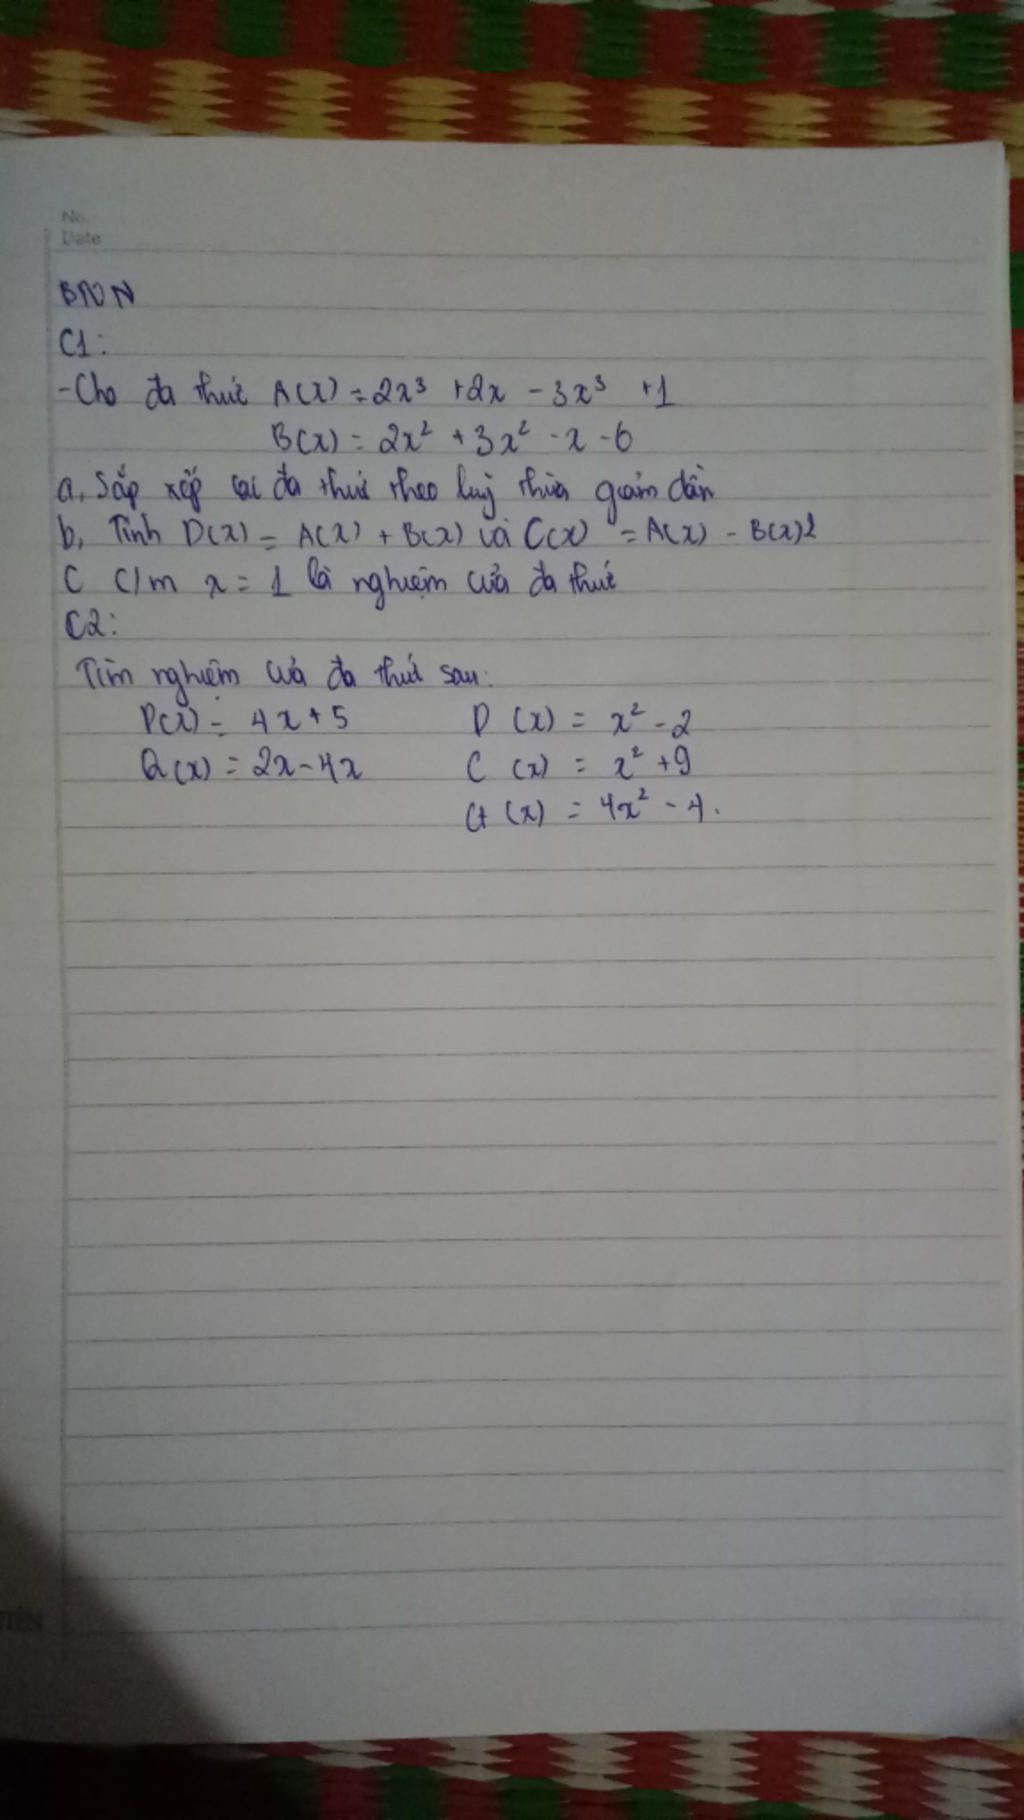 No.
Date
BTVN
C1:
-Cho đa thức A(x) = 2x³ +2x - 3x³ +1
B(x) = 2x² + 3x² - x - 6
a, Sắp xếp lại đa thức theo luỹ thừa giảm dần
b, Tính D(x) = A(x) + B(x) và C(x) = A(x) - B(x)
C C/m x = 1 là nghiệm của đa thức
C2:
Tìm nghiệm của đa thức sau:
P(x) = 4x+5 D (x) = x² - 2
Q(x) = 2x-4x C (x) = x² +9
G (x) = 4x² - 4.